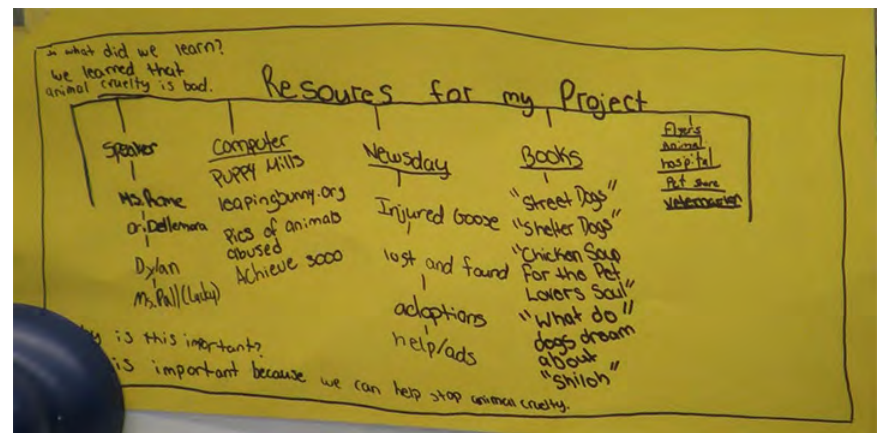 what did we learn?
we learned that
animal cruelty is bad.
Resoures for my Project
Speaker
Ms. Rome
Dylan
Computer
PUPPY Mills
leapingbunny.org
Pics of animals
abused
Achieve 3000
Newsday
Injured Goose
lost and found
adoptions
help/ads
Books
"Street Dogs"
"Shelter Dogs"
"Chicken Soup
For the Pet
Lovers Soul"
"What do
dogs dream
about
"Shiloh"
Flyers
Animal
hospital
Pet store
is this important?
is important because we can help stop animal cruelty.